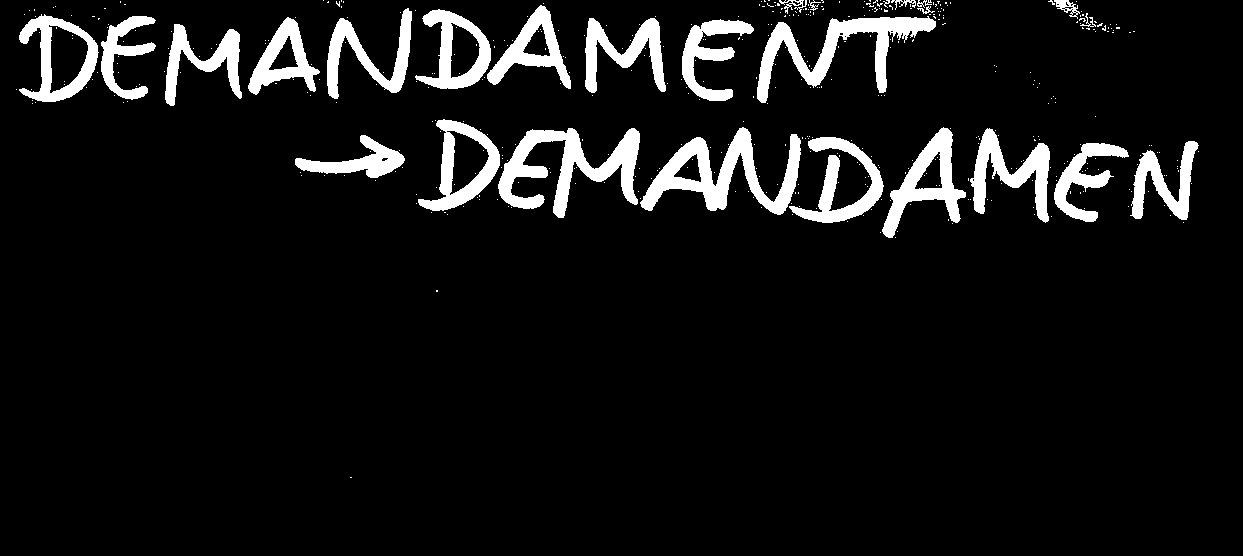 DEMANDAMENT
→ DEMANDAMEN